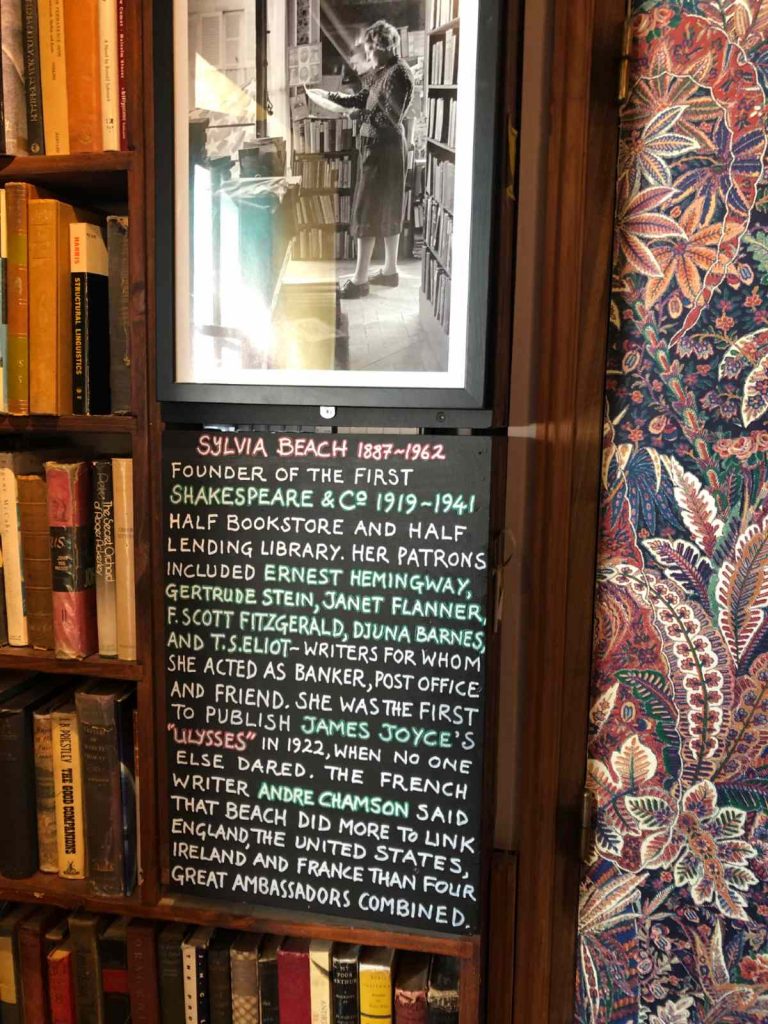 SYLVIA BEACH 1887~1962
FOUNDER OF THE FIRST
SHAKESPEARE & Cº 1919~1941
HALF BOOKSTORE AND HALF
LENDING LIBRARY. HER PATRONS
INCLUDED ERNEST HEMINGWAY,
GERTRUDE STEIN, JANET FLANNER,
F. SCOTT FITZGERALD, DJUNA BARNES,
AND T.S. ELIOT~ WRITERS FOR WHOM
SHE ACTED AS BANKER, POST OFFICE
AND FRIEND. SHE WAS THE FIRST
TO PUBLISH JAMES JOYCE'S
"ULYSSES" IN 1922, WHEN NO ONE
ELSE DARED. THE FRENCH
WRITER ANDRE CHAMSON SAID
THAT BEACH DID MORE TO LINK
ENGLAND, THE UNITED STATES,
IRELAND AND FRANCE THAN FOUR
GREAT AMBASSADORS COMBINED.
HARRIS
STRUCTURAL LINGUISTICS
The Secret Orchard
of Roger Ackerley
J.B. PRIESTLEY
THE GOOD COMPANIONS